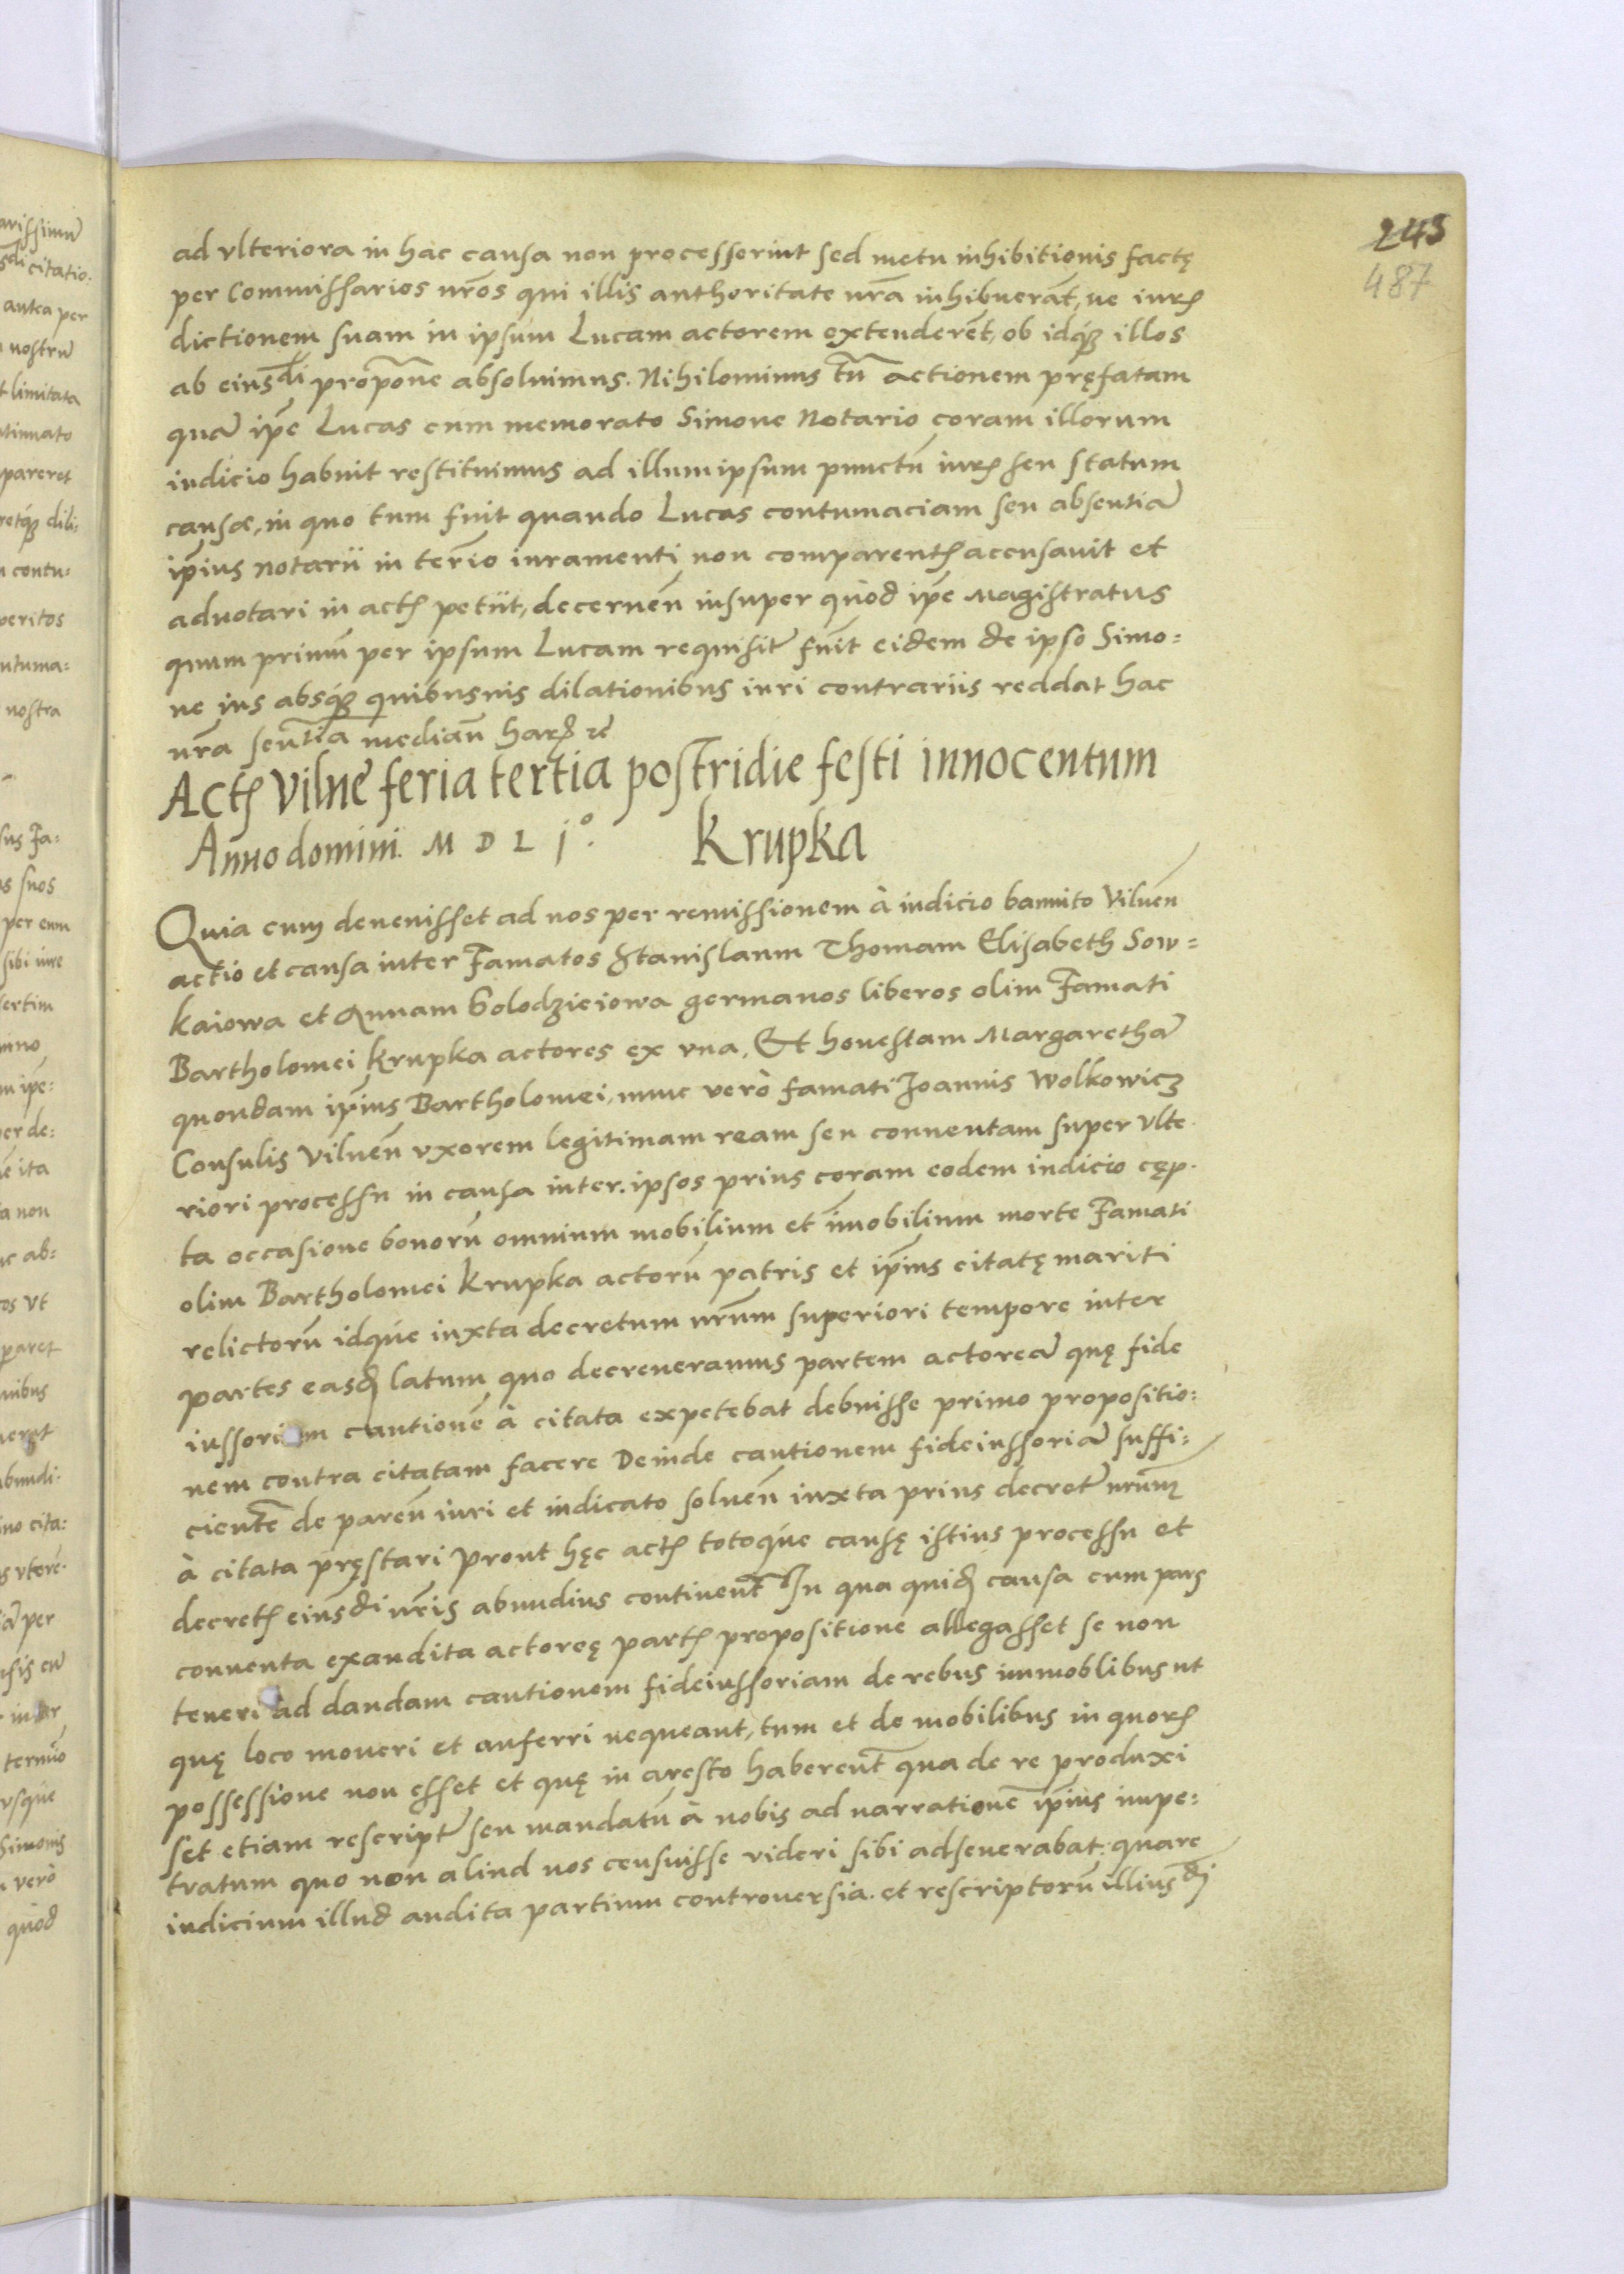 243
487
ad vlteriora in hac causa non processerint sed metu inhibitionis factę
per Commissarios nr̃os qui illis authoritate nr̃a inhibuerãt, ne iurꝭ
dictionem suam in ipsum Lucam actorem extenderẽt, ob idqꝫ illos
ab eiusdi propõne absoluimus. Nihilominus tñ actionem pręfatam
quã ip̃e Lucas cum memorato Simone Notario coram illorum
iudicio habuit restituimus ad illum ipsum punctũ iurꝭ seu statum
causæ, in quo tum fuit quando Lucas contumaciam seu absentiã
ip̃ius notarii in ter̃io iuramenti non comparentꝭ accusauit et
adnotari in actꝭ petiit, decerneñ insuper quòd ip̃e Magistratus
quum primũ per ipsum Lucam requisit͛ fuit eidem de ipso Simo=
ne ius absqꝫ quibusuis dilationibus iuri contrariis reddat hac
nr̃a señtia mediañ harꝭ rẽ
Actꝭ Vilnẽ feria tertia postridie festi innocentum
Anno domini. M D L jº.
Krupka
Quia cum deuenisset ad nos per remissionem à iudicio bannito Vilneñ
actio et causa inter Famatos Stanislaum Thomam Elisabeth Sow=
kaiowa et Annam Kolodzieiowa germanos liberos olim Famati
Bartholomei Krupka actores ex vna, Et honestam Margarethã
quondam ip̃ius Bartholomei, nunc verò famati Joannis Wolkowicz
Consulis Vilneñ vxorem legitimam ream seu conuentam super vlte.
riori processu in causa inter. ipsos prius coram eodem iudicio cęp.
ta occasione bonorũ omnium mobilium et im̃obilium morte Famati
olim Bartholomei Krupka actorũ patris et ip̃ius citatę mariti
relictorũ idqúe iuxta decretum nr̃um superiori tempore inter
partes easđ latum quo decreueramus partem actoreã quę fide
iussoriam cautionẽ à citata expetebat debuisse primo propositio=
nem contra citatam facere Deinde cautionem fideiussoriã suffi=
cientẽ de pareñ iuri et iudicato solueñ iuxta prius decret͛ nr̃um
à citata pręstari Prout hęc actꝭ totoqúe causę istius processu et
decretꝭ eiusdi nr̃is abundius continent͛ In qua quiđ causa cum pars
conuenta exaudita actoreę partꝭ propositione allegasset se non
teneri ad dandam cautionem fideiussoriam de rebus immoblibus ut
quę loco moueri et auferri nequeant, tum et de mobilibus in quorꝭ
possessione non esset et quę in aresto haberent͛ qua de re produxi
set etiam rescript͛ seu mandatũ à nobis ad narrationẽ ip̃ius impe=
tratum quo non aliud nos censuisse videri sibi adseuerabat: quare
iudicium illud audita partium controuersia. et rescriptorũ illiusdi